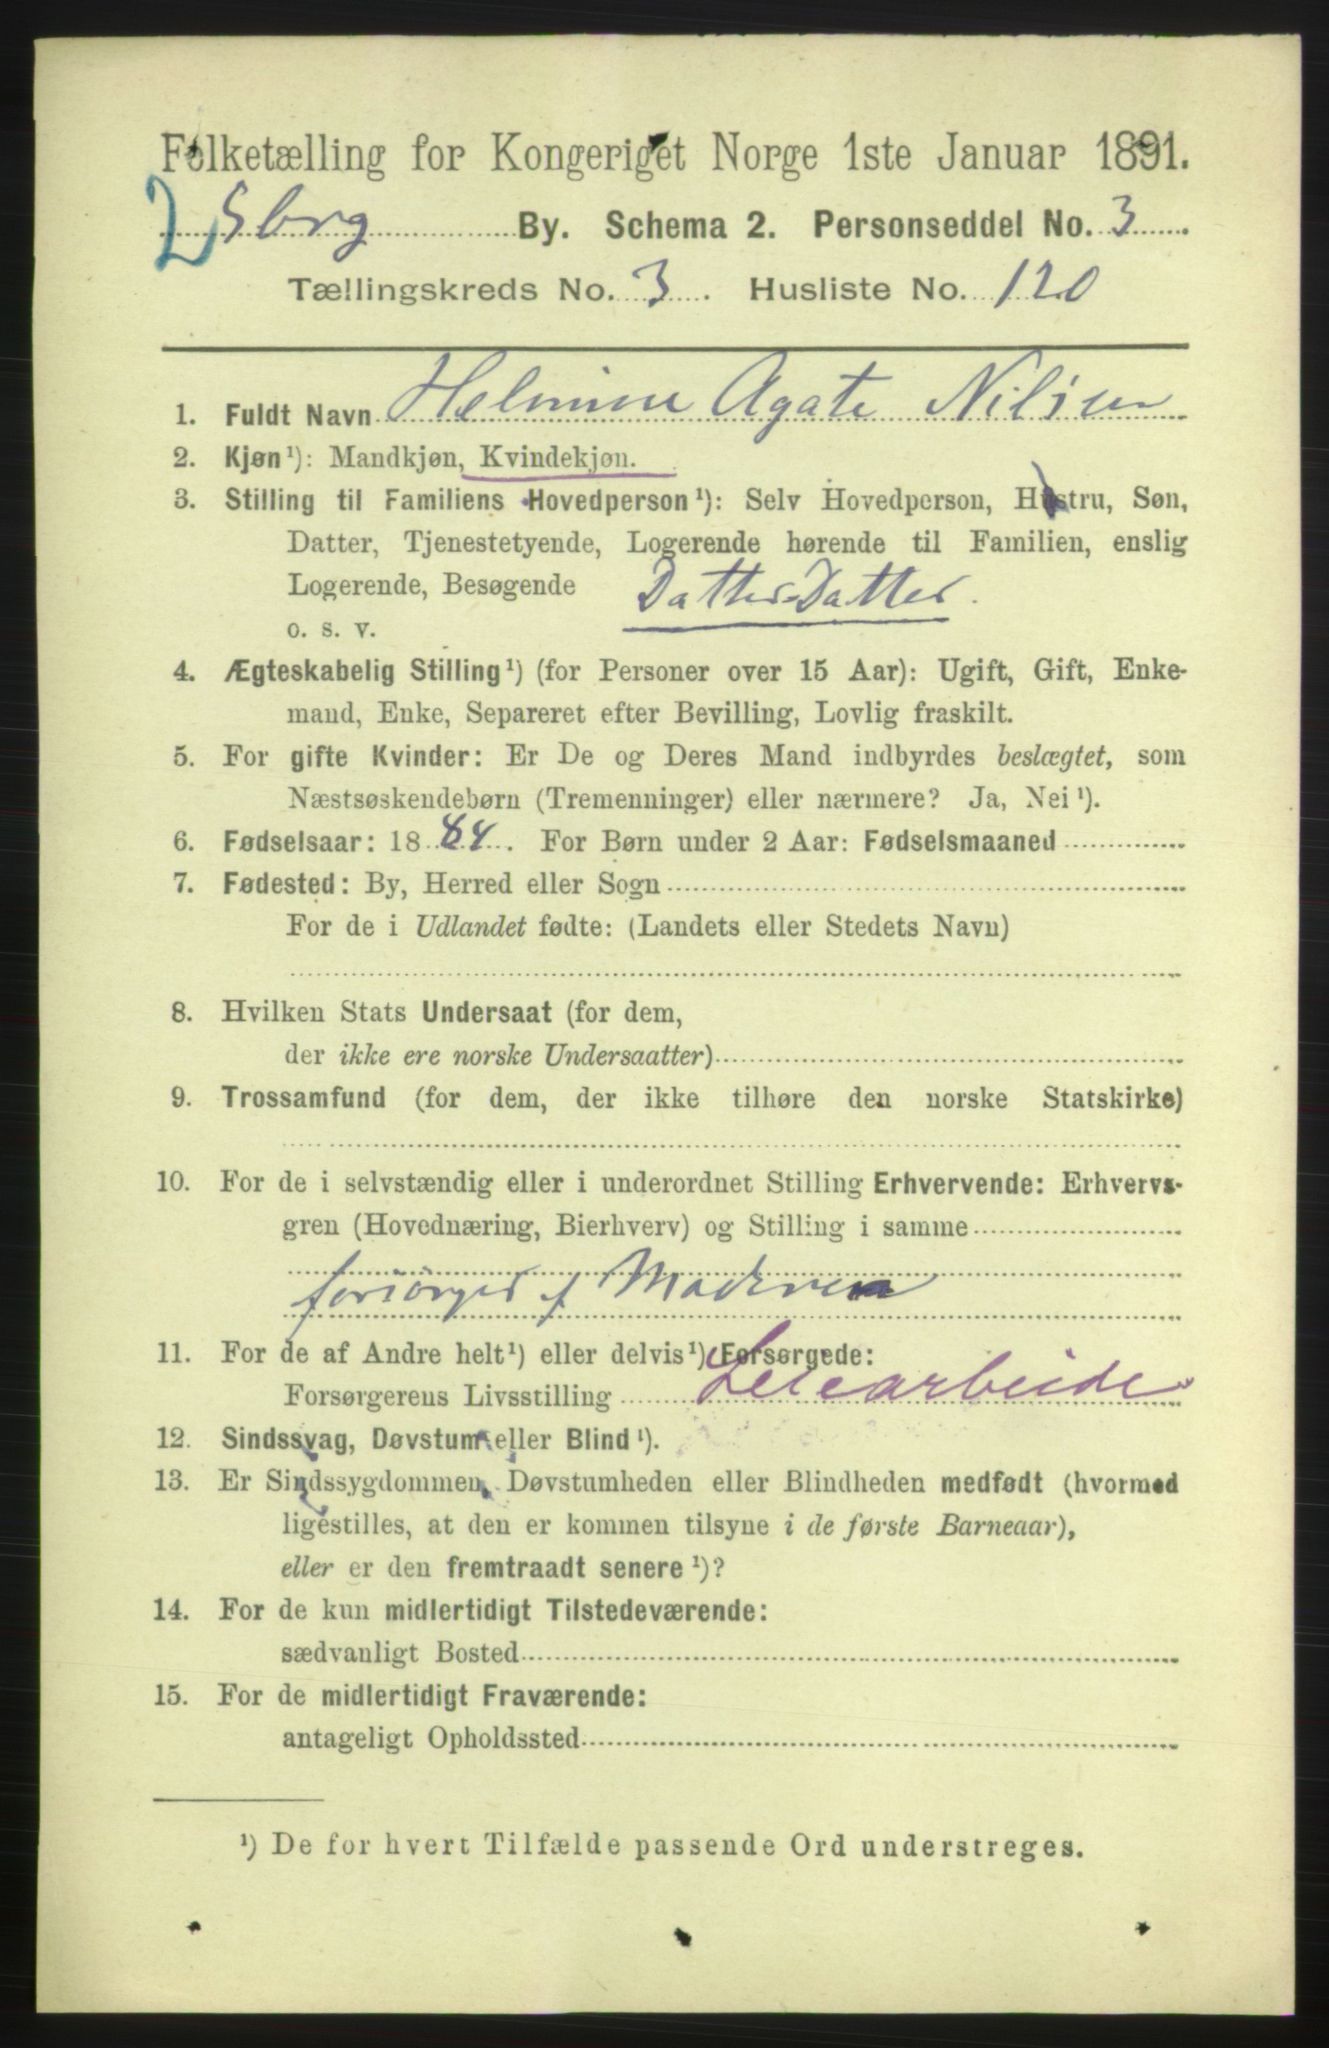 Folketælling for Kongeriget Norge 1ste Januar 1891.
2 Sbrg By. Schema 2. Personseddel No. 3
Tællingskreds No. 3. Husliste No. 120
1. Fuldt Navn Helmine Agate Nilsen
2. Kjøn¹): Mandkjøn, Kvindekjøn.
3. Stilling til Familiens Hovedperson¹): Selv Hovedperson, Hustru, Søn,
Datter, Tjenestetyende, Logerende hørende til Familien, enslig
Logerende, Besøgende Datter-Datter.
o. s. v.
4. Ægteskabelig Stilling¹) (for Personer over 15 Aar): Ugift, Gift, Enke-
mand, Enke, Separeret efter Bevilling, Lovlig fraskilt.
5. For gifte Kvinder: Er De og Deres Mand indbyrdes beslægtet, som
Næstsøskendebørn (Tremenninger) eller nærmere? Ja, Nei¹).
6. Fødselsaar: 1884. For Børn under 2 Aar: Fødselsmaaned
7. Fødested: By, Herred eller Sogn
For de i Udlandet fødte: (Landets eller Stedets Navn)
8. Hvilken Stats Undersaat (for dem,
der ikke ere norske Undersaatter)
9. Trossamfund (for dem, der ikke tilhøre den norske Statskirke)
10. For de i selvstændig eller i underordnet Stilling Erhvervende: Erhvervs-
gren (Hovednæring, Bierhverv) og Stilling i samme
forsørges af Moderen
11. For de af Andre helt¹) eller delvis¹) Forsørgede:
Forsørgerens Livsstilling Leiearbeide
12. Sindssvag, Døvstum eller Blind¹).
13. Er Sindssygdommen, Døvstumheden eller Blindheden medfødt (hvormed
ligestilles, at den er kommen tilsyne i de første Barneaar),
eller er den fremtraadt senere¹)?
14. For de kun midlertidigt Tilstedeværende:
sædvanligt Bosted
15. For de midlertidigt Fraværende:
antageligt Opholdssted
¹) De for hvert Tilfælde passende Ord understreges.